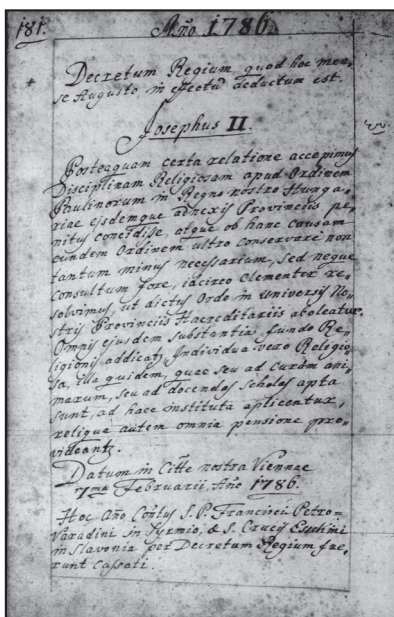 181. Año 1786.
Decretum Regium, quod hoc men-
se Augusto in efectũ deductum est.
Josephus II.
Posteaquam certa relatione accepimus
Disciplinam Religiosam apud Ordinem
Paulinorum in Regno nostro Hunga-
riae ejsdemque adnexis Provinciis pe-
nitus concidisse, atque ob hanc causam
eundem Ordinem ultro conservare non
tantum minus necessarium, sed neque
consultum fore, idcirco clementer re-
solvimus, ut dictus Ordo in universis No-
stris Provinciis Haereditariis aboleatur.
Omnis ejusdem substantia fundo Re-
ligionis addicatʒ, Individua vero Religio-
sa, illa quidem, quae seu ad curam ani-
marum, seu ad docendas scholas apta
sunt, ad haec instituta aplicentur,
relique autem omnia pensione pro-
videantʒ.
Datum in Citte nostra Viennae
7ma Februarii, Año 1786.
Hoc Año Conṽtus S. P. Francisci Petro-
Varadini in Syrmio, & S. Crucis Essekini
in Slavonia per Decretum Regium fue-
runt cassati.